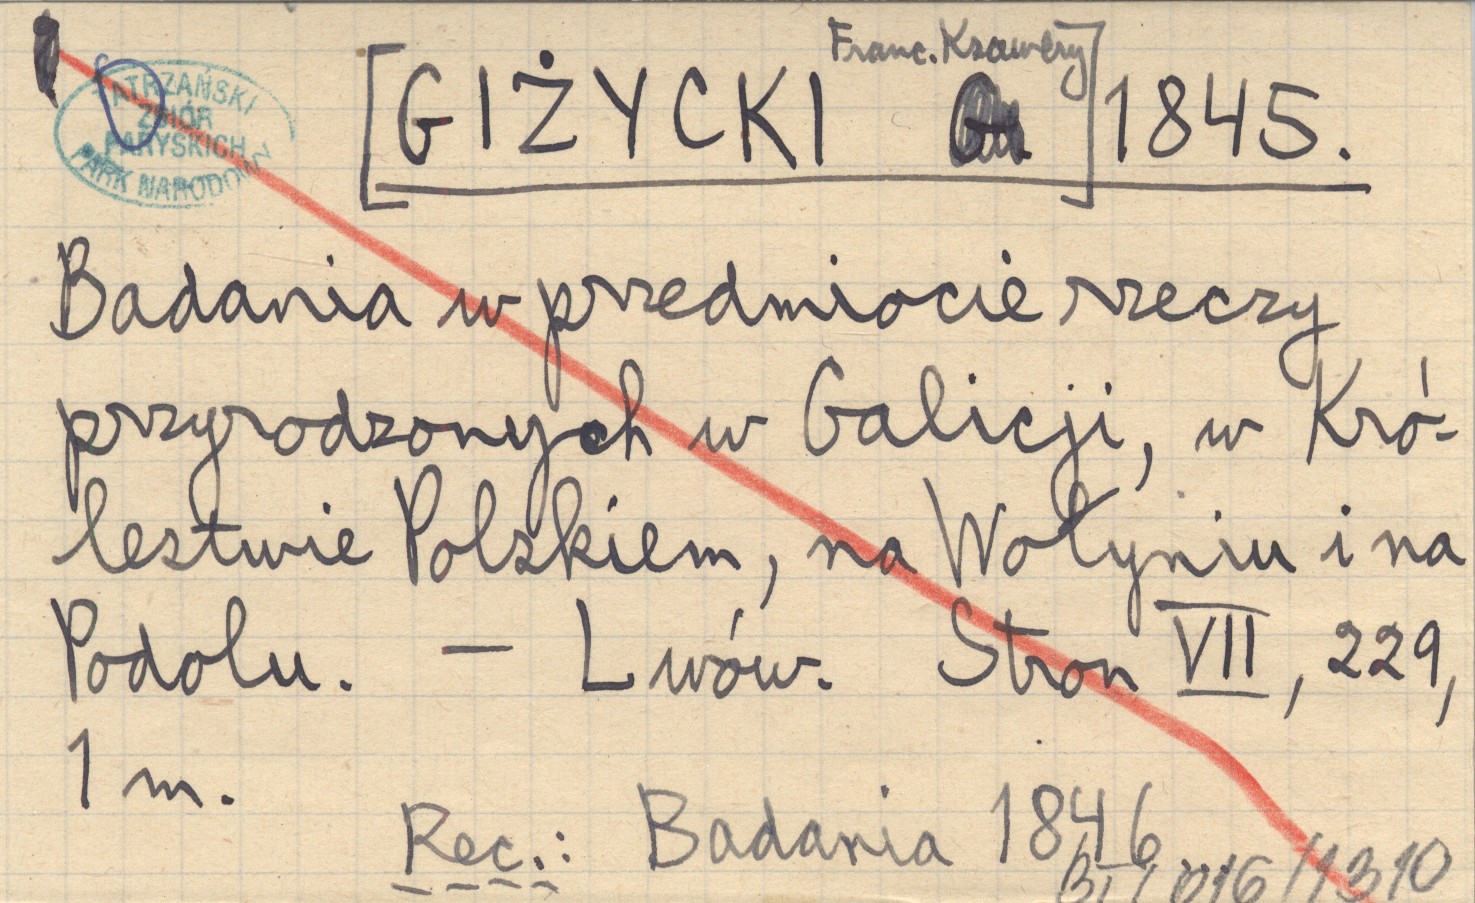 Franc. Ksawery
[GIŻYCKI ] 1845.
TATRZAŃSKI
ZBIÓR
PARYSKICH
PARK NARODOWY
Badania w przedmiocie rzeczy
przyrodzonych w Galicji, w Kró-
lestwie Polskiem, na Wołyniu i na
Podolu. — Lwów. Stron VII, 229,
1 m.
Rec.: Badania 1846
/ 016/1310